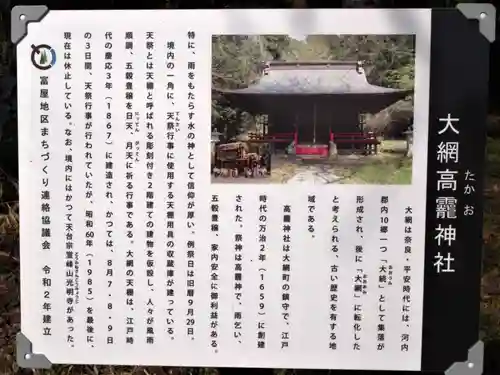 大網高龗神社
たかお
大網は奈良・平安時代には、河内
郡内10郷一つ「大続」として集落が
おおつぐ
形成され、後に「大網」に転化した
おおあみ
と考えられる、古い歴史を有する地
域である。
高龗神社は大網町の鎮守で、江戸
時代の万治2年(1659)に創建
された。祭神は高龗神で、雨乞い、
五穀豊穣、家内安全に御利益がある。
特に、雨をもたらす水の神として信仰が厚い。例祭日は旧暦9月29日。
境内の一角に、天祭行事に使用する天棚用具の収蔵庫が建っている。
てんさい
天祭とは天棚と呼ばれる彫刻付き2階建ての建物を仮設し、人々が風雨
順調、五穀豊穣を日天、月天に祈る行事である。大網の天棚は、江戸時
にってん がってん
代の慶応3年(1867)に建造され、かつては、8月7・8・9日
の3日間、天祭行事が行われていたが、昭和60年(1985)を最後に、
現在は休止している。なお、境内にはかつて天台宗堂峰山光明寺があった。
富屋地区まちづくり連絡協議会 令和2年建立